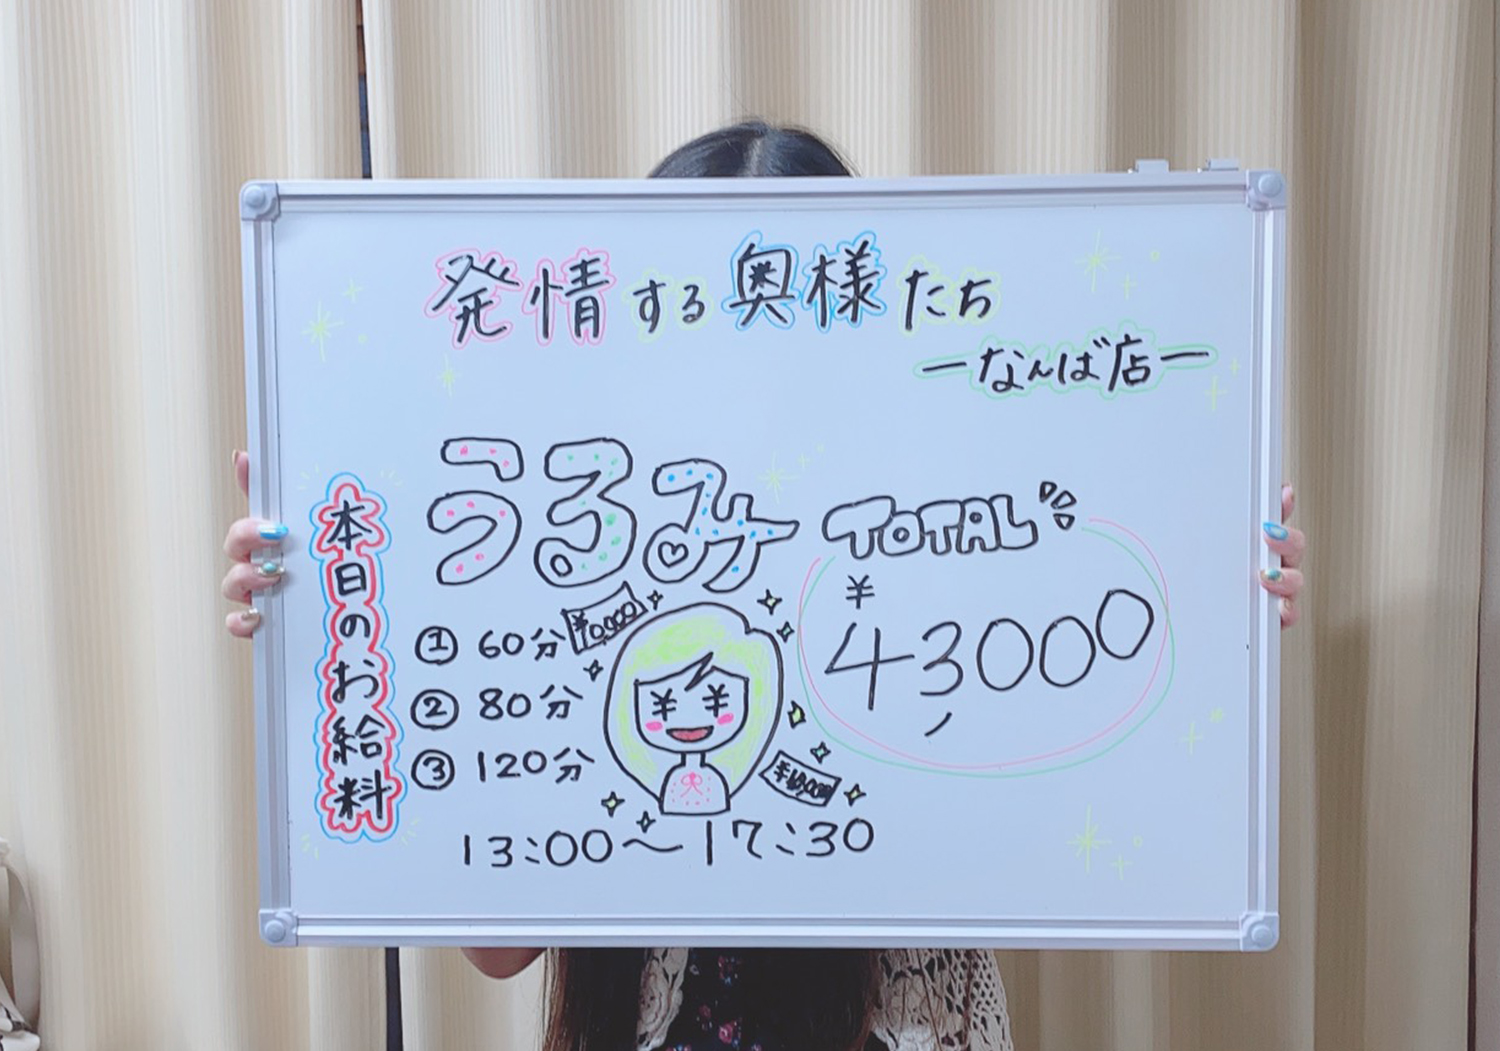 発情する奥様たち
ーなんば店ー
本日のお給料
うるみ
① 60分
② 80分
③ 120分
13:00～17:30
¥10,000
¥ ¥
¥10,000
TOTAL
¥
43,000